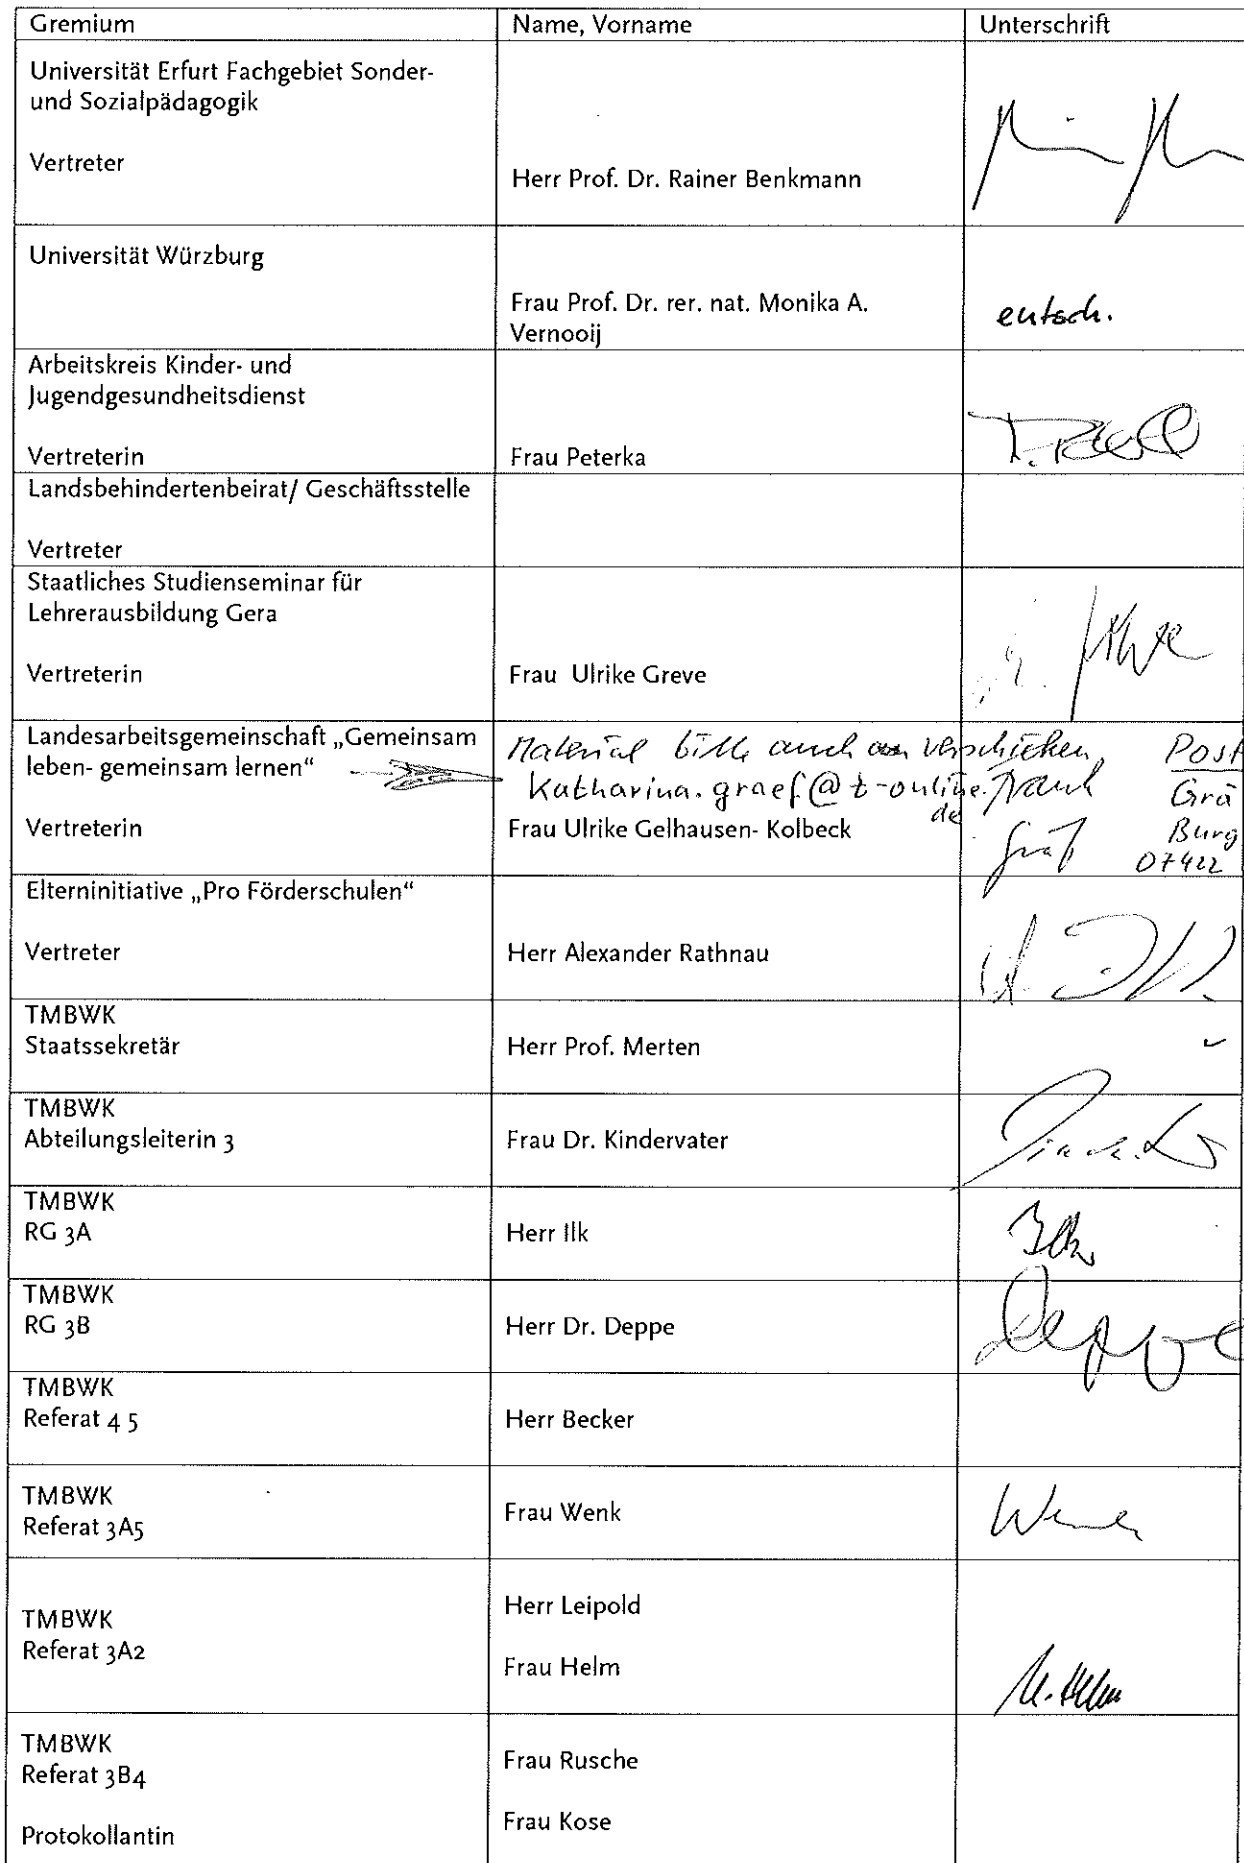 Gremium Name, Vorname Unterschrift
Universität Erfurt Fachgebiet Sonder-
und Sozialpädagogik
Vertreter
Herr Prof. Dr. Rainer Benkmann
Universität Würzburg
Frau Prof. Dr. rer. nat. Monika A.
Vernooij
entsch.
Arbeitskreis Kinder- und
Jugendgesundheitsdienst
Vertreterin Frau Peterka
Landsbehindertenbeirat/ Geschäftsstelle
Vertreter
Staatliches Studienseminar für
Lehrerausbildung Gera
Vertreterin Frau Ulrike Greve
Landesarbeitsgemeinschaft „Gemeinsam
leben- gemeinsam lernen“
Material bitte auch an verschicken Post
Katharina.graef@t-online.de Dank Grä
Vertreterin Frau Ulrike Gelhausen- Kolbeck
Gräf Burg
07422
Elterninitiative „Pro Förderschulen“
Vertreter Herr Alexander Rathnau
TMBWK
Staatssekretär Herr Prof. Merten
TMBWK
Abteilungsleiterin 3 Frau Dr. Kindervater
TMBWK
RG 3A Herr Ilk Ilk
TMBWK
RG 3B Herr Dr. Deppe Deppe
TMBWK
Referat 4 5 Herr Becker
TMBWK
Referat 3A5 Frau Wenk Wenk
TMBWK
Referat 3A2
Herr Leipold
Frau Helm M. Helm
TMBWK
Referat 3B4
Frau Rusche
Protokollantin
Frau Kose